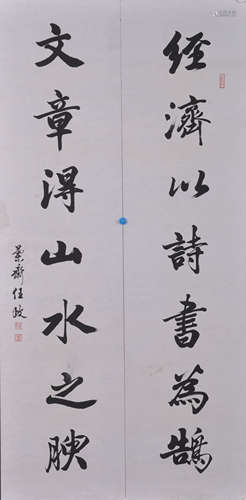 經濟以詩書為鵠
文章得山水之腴
景齋任政